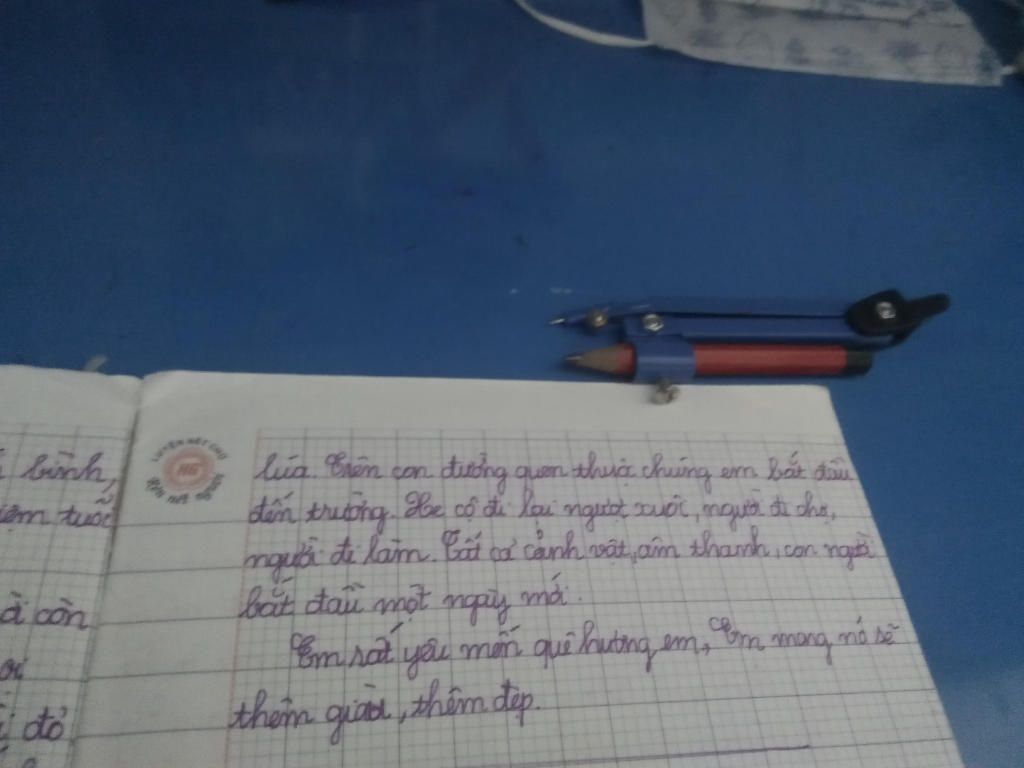 bình,
tuổi
à còn
đỏ
LUYỆN NÉT CHỮ
RÈN NẾT NGƯỜI
HG
lúa. Trên con đường quen thuộc chúng em bắt đầu
đến trường. Xe cộ đi lại ngượt xuôi, người đi chợ,
người đi làm. Tất cả cảnh vật, âm thanh, con người
bắt đầu một ngày mới.
Em rất yêu mến quê hương em, Em mong nó sẽ
thêm giàu, thêm đẹp.